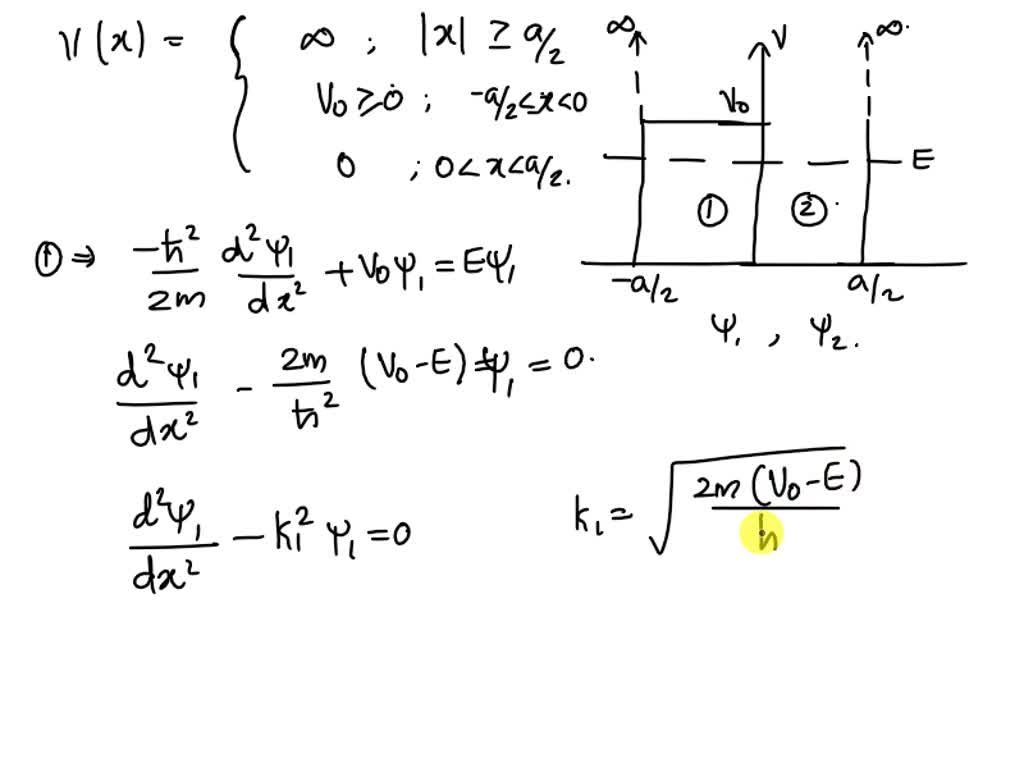 V(x) = { ∞ ; |x| ≥ a/2
V₀ ≥ 0 ; -a/2 < x < 0
0 ; 0 < x < a/2.
∞ V ∞.
V₀
E
① ②.
-a/2 a/2
ψ₁ , ψ₂.
① ⇒ -ħ²/2m d²ψ₁/dx² + V₀ψ₁ = Eψ₁
d²ψ₁/dx² - 2m/ħ² (V₀ - E) ψ₁ = 0.
d²ψ₁/dx² - k₁² ψ₁ = 0
k₁ = √(2m(V₀ - E)/ħ)